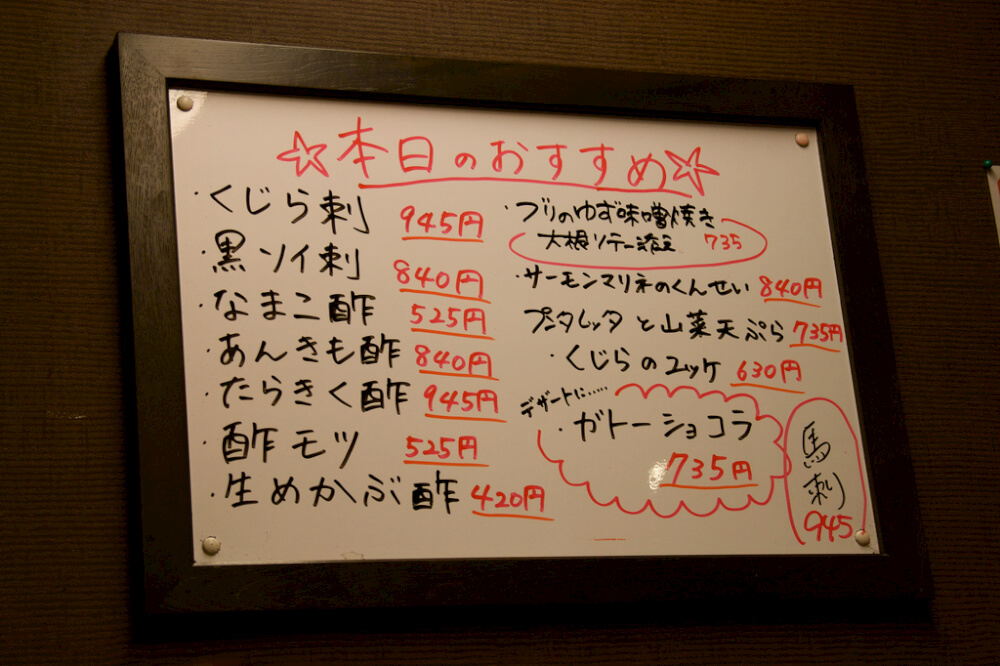 ☆本日のおすすめ☆
・くじら刺 945円
・黒ソイ刺 840円
・なまこ酢 525円
・あんきも酢 840円
・たらきく酢 945円
・酢モツ 525円
・生めかぶ酢 420円
・ブリのゆず味噌焼き
大根ソテー添え 735
・サーモンマリネのくんせい 840円
と山菜天ぷら 735円
・くじらのユッケ 630円
デザートに……
・ガトーショコラ
735円
馬刺
945